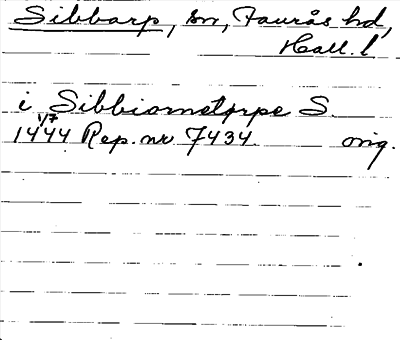 Sibbarp, sn, Faurås hd,
Hall. l
i Sibbiornstorpe S.
1444 1/7 Rep. nr 7434 orig.